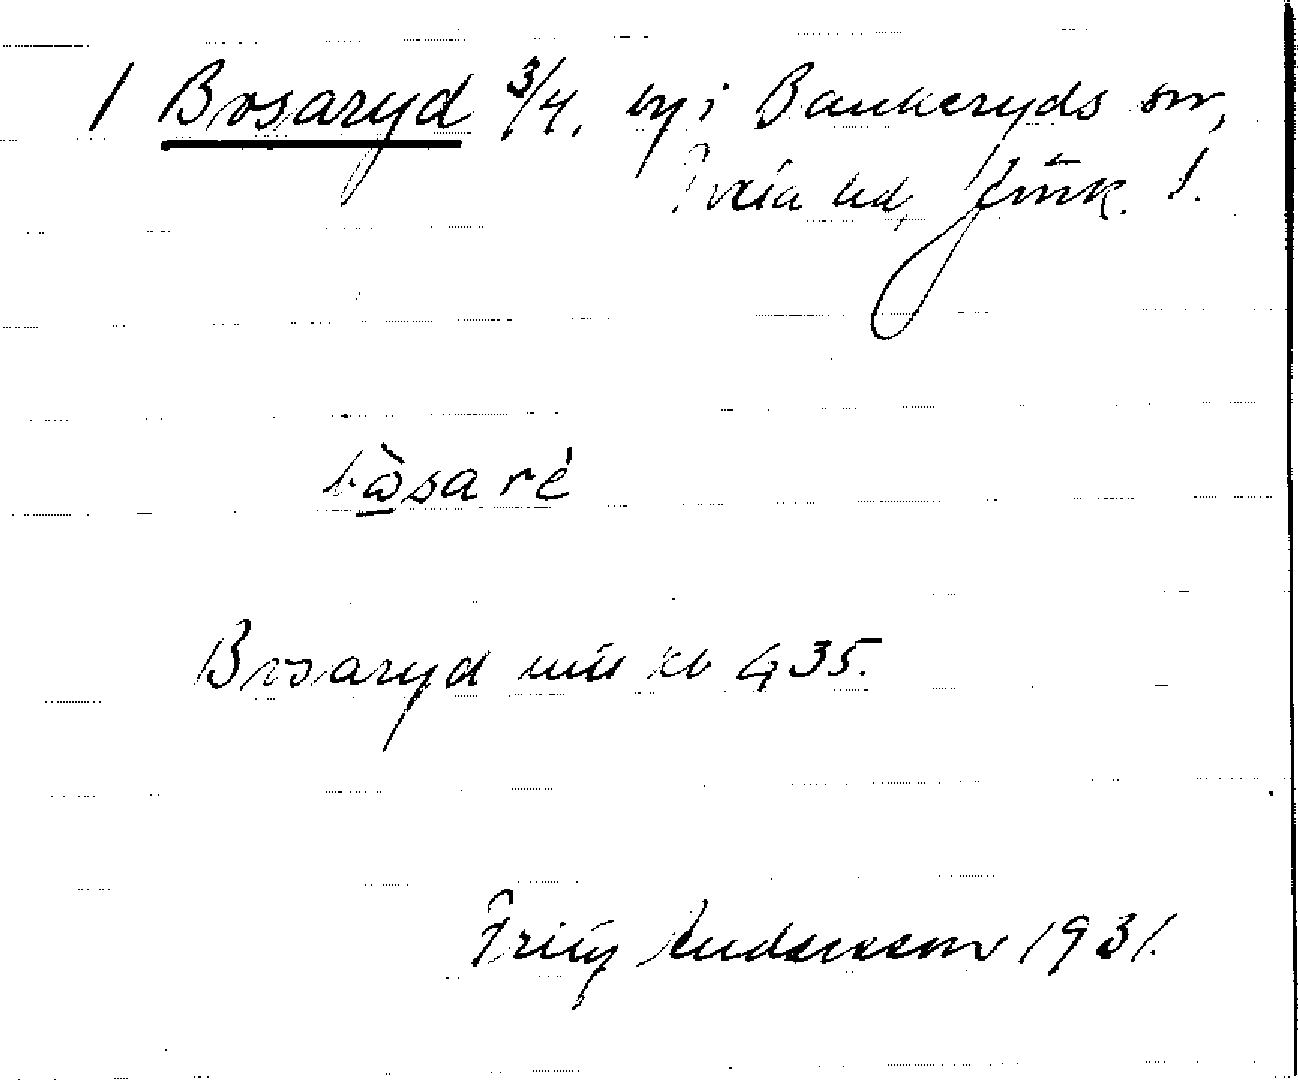 1 Bosaryd 3/4, by i Bankeryds sn,
Tveta hd, Jönk. l.
bòsaré
Bosaryd
435.
Fritz Andersson 1931.